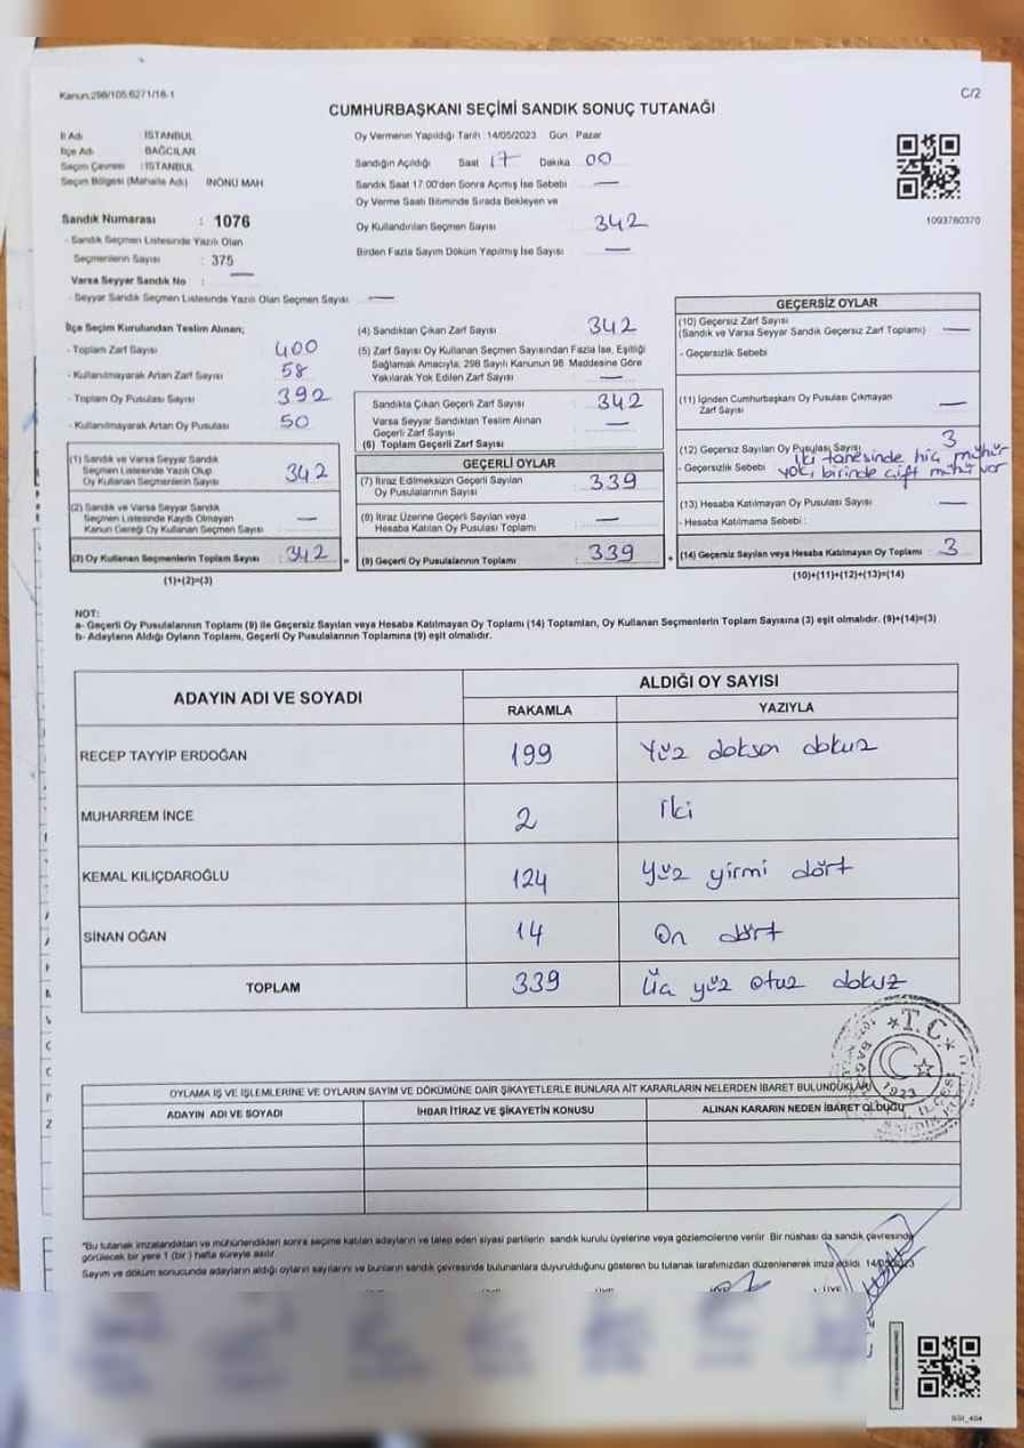 Kanun:298/105:6271/18-1
C/2
CUMHURBAŞKANI SEÇİMİ SANDIK SONUÇ TUTANAĞI
İl Adı : İSTANBUL
İlçe Adı : BAĞCILAR
Seçim Çevresi : İSTANBUL
Seçim Bölgesi (Mahalle Adı) İNÖNÜ MAH
Oy Vermenin Yapıldığı Tarih : 14/05/2023 Gün : Pazar
Sandığın Açıldığı Saat 17 Dakika 00
Sandık Saat 17:00'den Sonra Açılmış İse Sebebi —
Oy Verme Saati Bitiminde Sırada Bekleyen ve
Oy Kullandırılan Seçmen Sayısı 342
Birden Fazla Sayım Döküm Yapılmış İse Sayısı —
1093780370
Sandık Numarası : 1076
- Sandık Seçmen Listesinde Yazılı Olan
Seçmenlerin Sayısı : 375
Varsa Seyyar Sandık No : —
- Seyyar Sandık Seçmen Listesinde Yazılı Olan Seçmen Sayısı —
İlçe Seçim Kurulundan Teslim Alınan;
- Toplam Zarf Sayısı 400
- Kullanılmayarak Artan Zarf Sayısı 58
- Toplam Oy Pusulası Sayısı 392
- Kullanılmayarak Artan Oy Pusulası 50
(1) Sandık ve Varsa Seyyar Sandık
Seçmen Listesinde Yazılı Olup
Oy Kullanan Seçmenlerin Sayısı 342
(2) Sandık ve Varsa Seyyar Sandık
Seçmen Listesinde Kayıtlı Olmayan
Kanun Gereği Oy Kullanan Seçmen Sayısı —
(3) Oy Kullanan Seçmenlerin Toplam Sayısı : 342
(1)+(2)=(3)
(4) Sandıktan Çıkan Zarf Sayısı 342
(5) Zarf Sayısı Oy Kullanan Seçmen Sayısından Fazla İse, Eşitliği
Sağlamak Amacıyla; 298 Sayılı Kanunun 98. Maddesine Göre
Yakılarak Yok Edilen Zarf Sayısı —
Sandıkta Çıkan Geçerli Zarf Sayısı 342
Varsa Seyyar Sandıktan Teslim Alınan
Geçerli Zarf Sayısı —
(6) Toplam Geçerli Zarf Sayısı
GEÇERLİ OYLAR
(7) İtiraz Edilmeksizin Geçerli Sayılan
Oy Pusulalarının Sayısı 339
(8) İtiraz Üzerine Geçerli Sayılan veya
Hesaba Katılan Oy Pusulası Toplamı —
(9) Geçerli Oy Pusulalarının Toplamı 339
GEÇERSİZ OYLAR
(10) Geçersiz Zarf Sayısı
(Sandık ve Varsa Seyyar Sandık Geçersiz Zarf Toplamı) —
- Geçersizlik Sebebi
(11) İçinden Cumhurbaşkanı Oy Pusulası Çıkmayan
Zarf Sayısı —
(12) Geçersiz Sayılan Oy Pusulası Sayısı 3
- Geçersizlik Sebebi iki tanesinde hiç mühür
yok, birinde çift mühür var
(13) Hesaba Katılmayan Oy Pusulası Sayısı —
- Hesaba Katılmama Sebebi :
(14) Geçersiz Sayılan veya Hesaba Katılmayan Oy Toplamı 3
(10)+(11)+(12)+(13)=(14)
NOT:
a- Geçerli Oy Pusulalarının Toplamı (9) ile Geçersiz Sayılan veya Hesaba Katılmayan Oy Toplamı (14) Toplamları, Oy Kullanan Seçmenlerin Toplam Sayısına (3) eşit olmalıdır. (9)+(14)=(3)
b- Adayların Aldığı Oyların Toplamı, Geçerli Oy Pusulalarının Toplamına (9) eşit olmalıdır.
ADAYIN ADI VE SOYADI
ALDIĞI OY SAYISI
RAKAMLA YAZIYLA
RECEP TAYYİP ERDOĞAN 199 Yüz doksan dokuz
MUHARREM İNCE 2 iki
KEMAL KILIÇDAROĞLU 124 Yüz yirmi dört
SİNAN OĞAN 14 On dört
TOPLAM 339 Üç yüz otuz dokuz
T.C.
1923
OYLAMA İŞ VE İŞLEMLERİNE VE OYLARIN SAYIM VE DÖKÜMÜNE DAİR ŞİKAYETLERLE BUNLARA AİT KARARLARIN NELERDEN İBARET BULUNDUKLARI
ADAYIN ADI VE SOYADI İHBAR İTİRAZ VE ŞİKAYETİN KONUSU ALINAN KARARIN NEDEN İBARET OLDUĞU
"Bu tutanak imzalandıktan ve mühürlendikten sonra seçime katılan adayların ve talep eden siyasi partilerin sandık kurulu üyelerine veya gözlemcilerine verilir. Bir nüshası da sandık çevresinde
görülecek bir yere 1 (bir) hafta süreyle asılır.
Sayım ve döküm sonucunda adayların aldığı oyların sayılarını ve bunların sandık çevresinde bulunanlara duyurulduğunu gösteren bu tutanak tarafımızdan düzenlenerek imza edildi. 14/05/2023